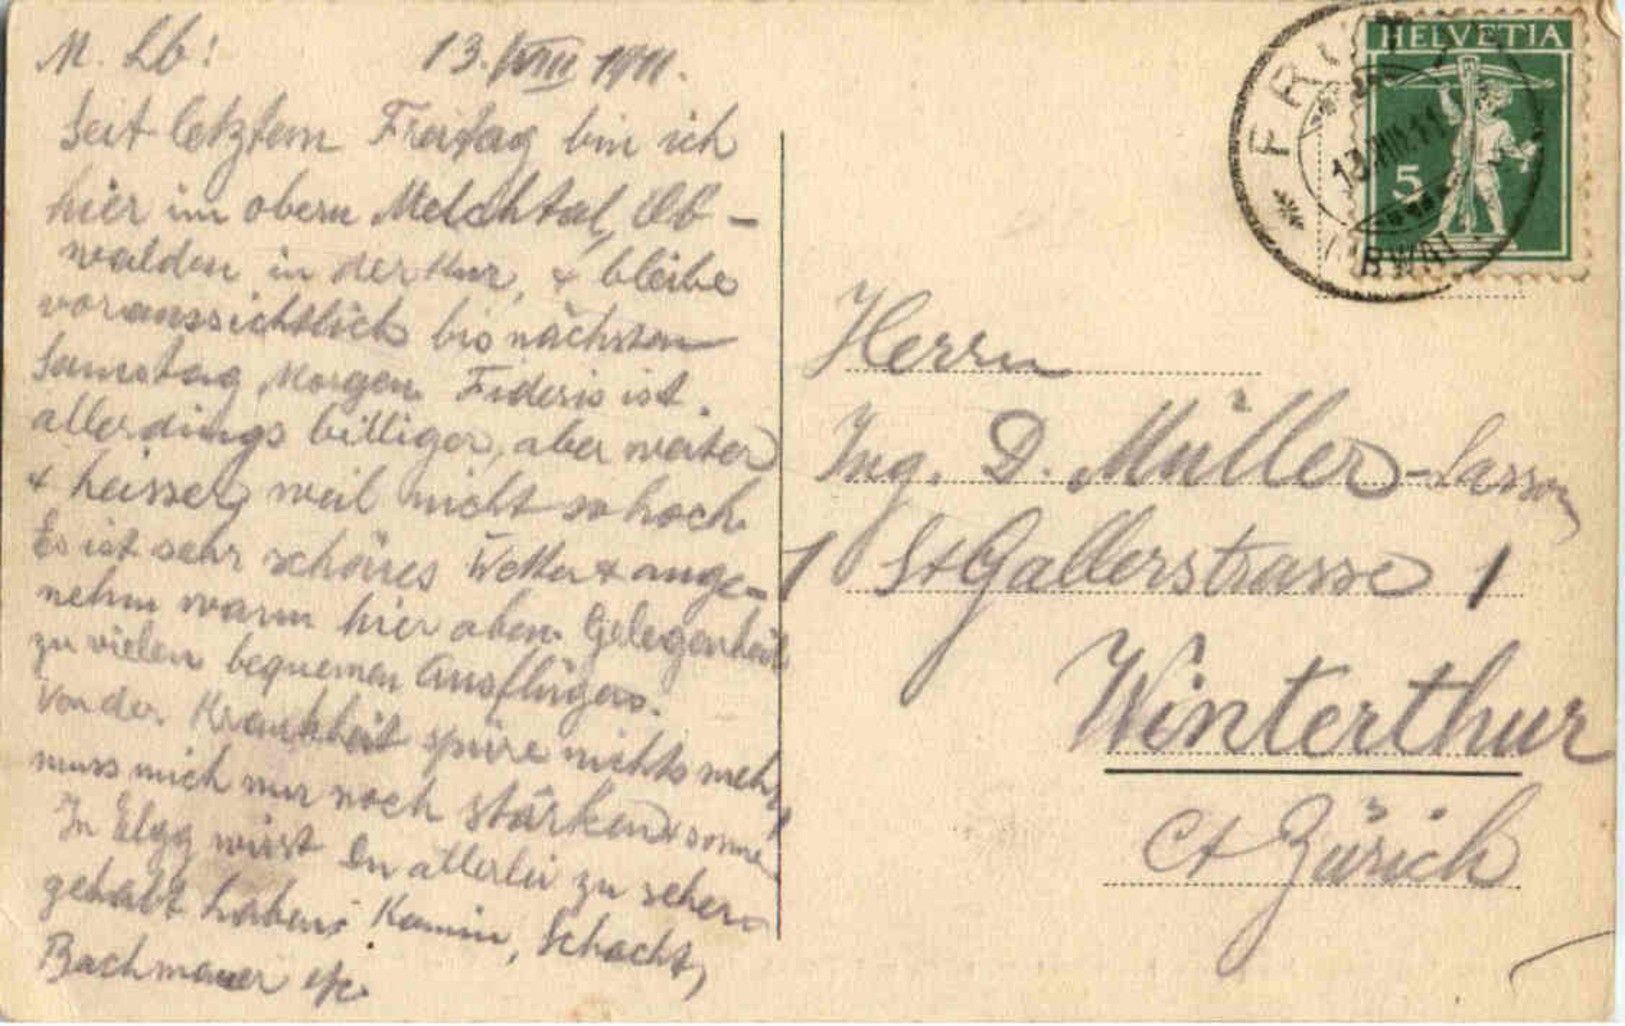 M. Lb! 13. VIII 1911.
Seit letztem Freitag bin ich
hier im obern Melchtal, Ob-
walden in der Kur, & bleibe
voraussichtlich bis nächsten
Samstag Morgen. Fideris ist
allerdings billiger, aber weiter
& heisser, weil nicht so hoch.
Es ist sehr schönes Wetter & ange-
nehm warm hier oben. Gelegenheit
zu vielen bequemen Ausflügen.
Von der Krankheit spüre nichts mehr,
muss mich nur noch stärken &
In Elgg wirst Du allerlei zu sehen
gehabt haben: Kamin, Schacht,
Bachmauer etc.
HELVETIA
5
FRU
13.VIII.11
Herrn
Ing. D. Müller-
St Gallerstrasse 1
Winterthur
Ct Zürich